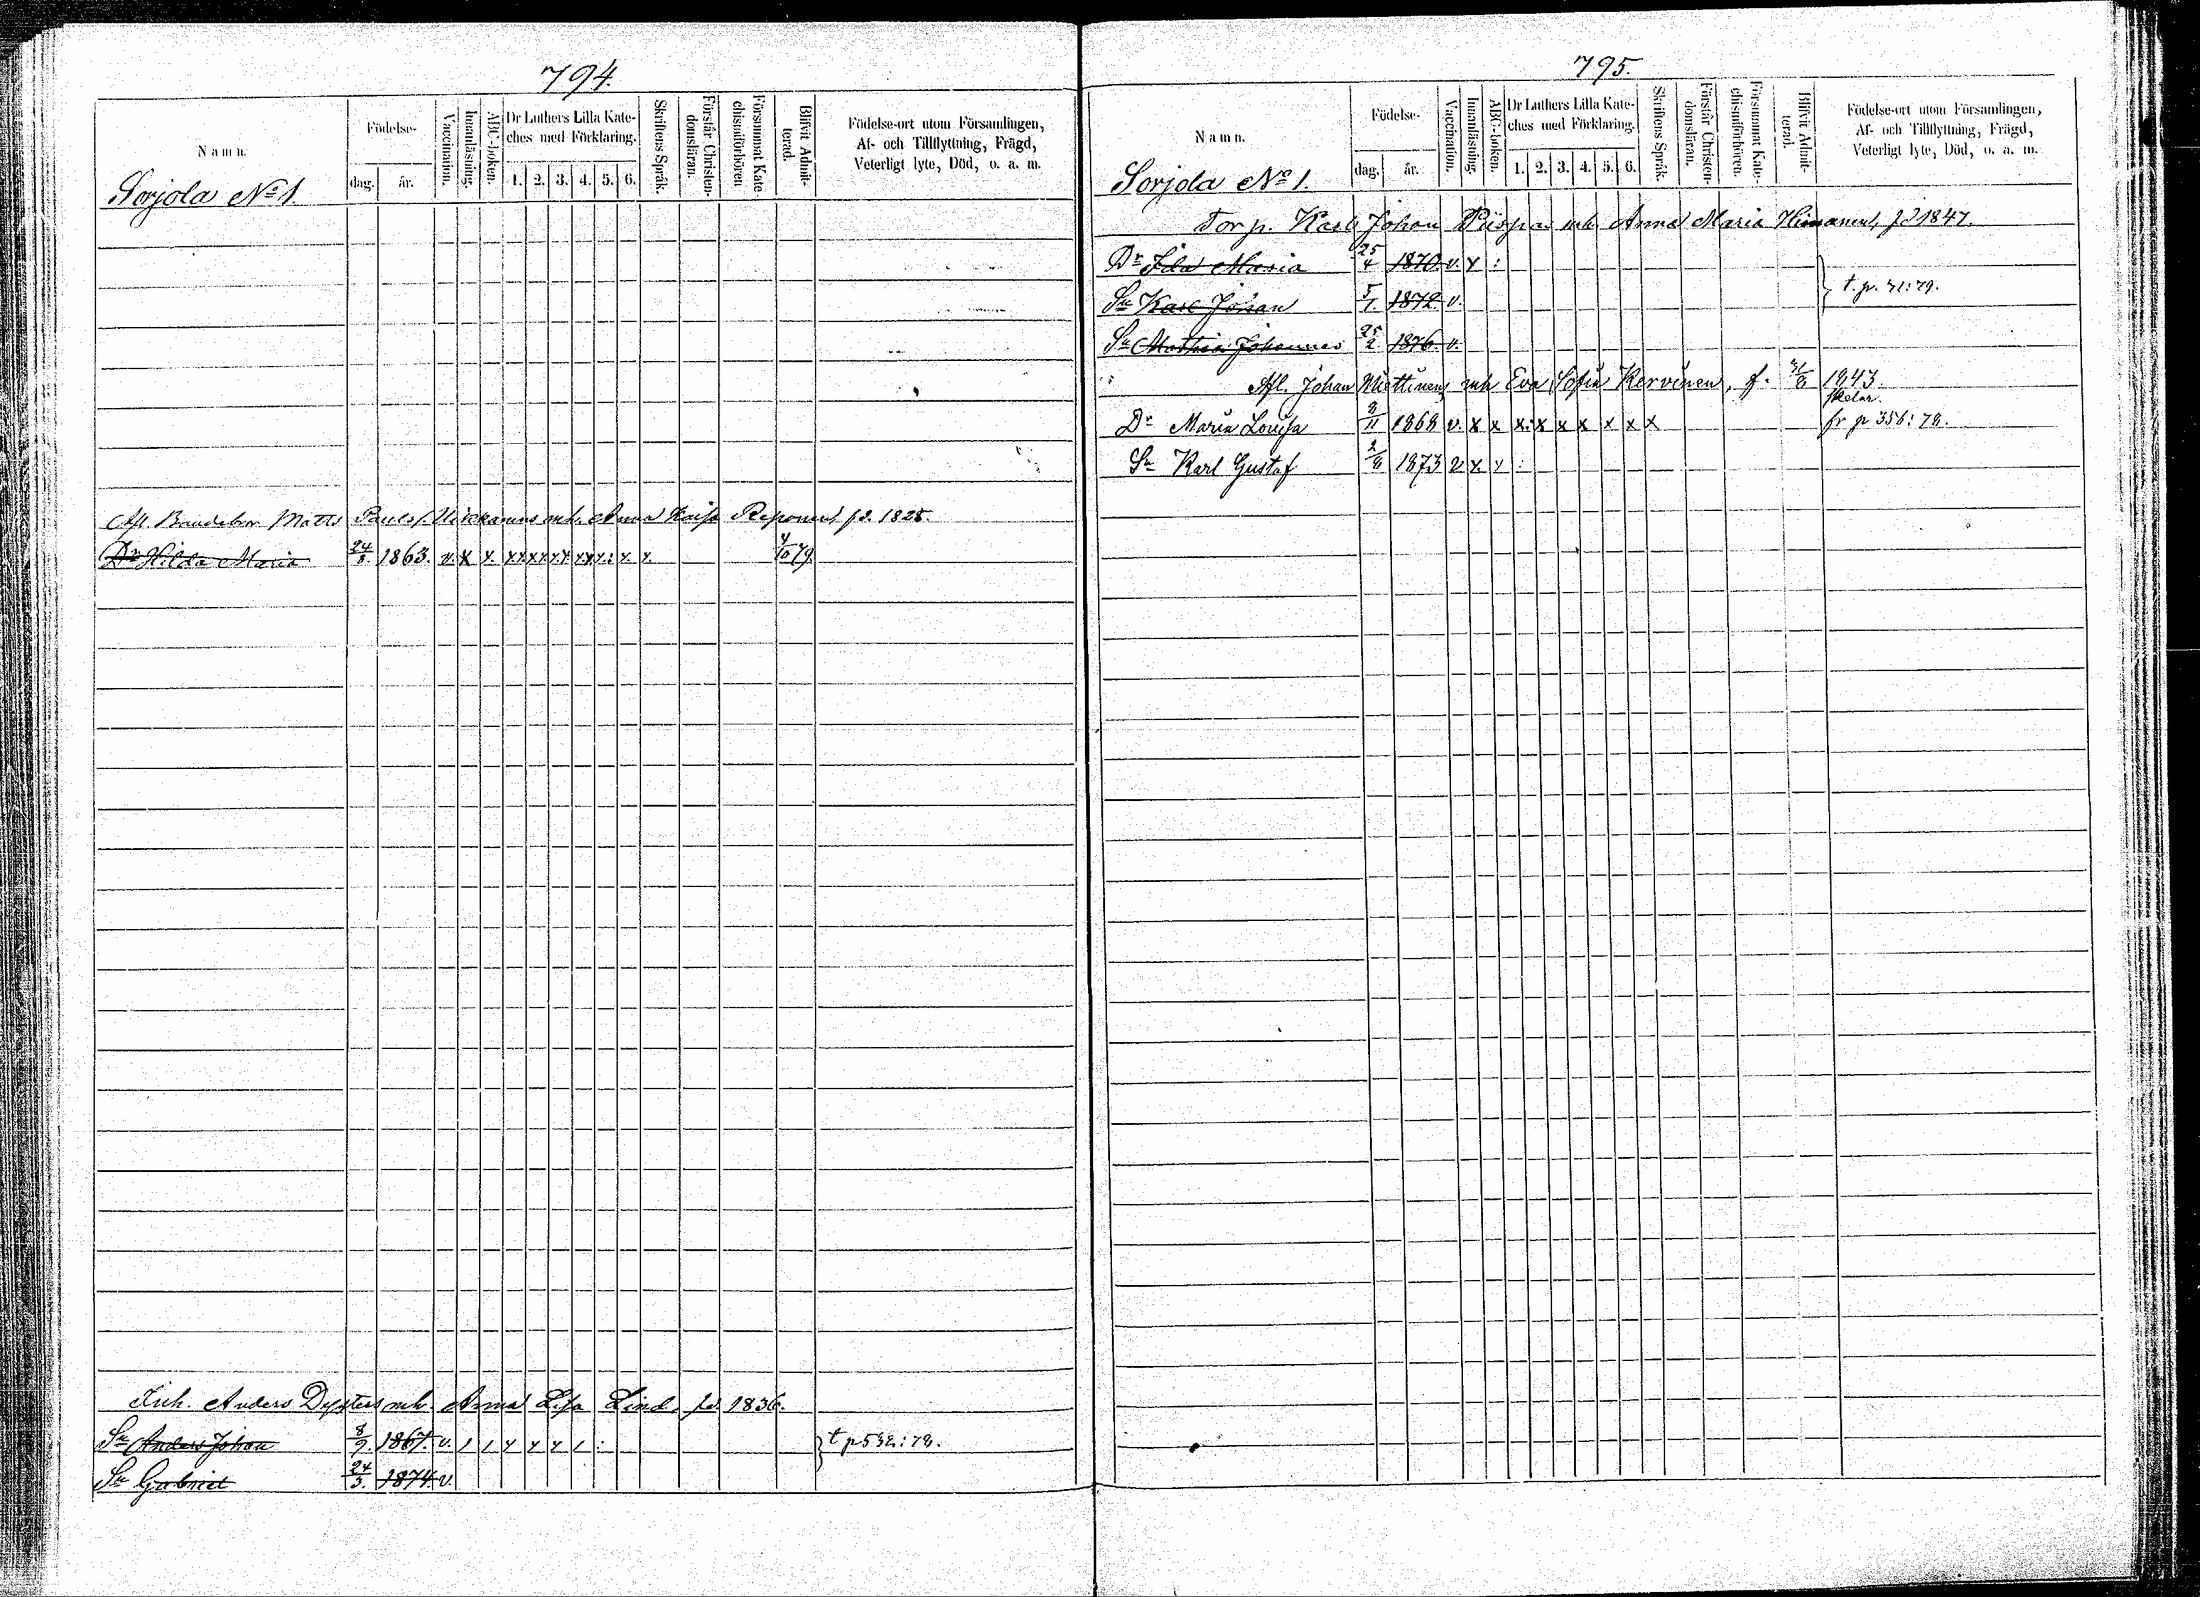 794.
Namn.
Födelse-
dag.
år.
Vaccination.
Innanläsning.
ABC-boken.
Dr Luthers Lilla Kate-
ches med Förklaring.
1. 2. 3. 4. 5. 6.
Skriftens Språk.
Förstår Christen-
domsläran.
Försummat Kate-
chismiförhören
Blifvit Admit-
terad.
Födelse-ort utom Församlingen,
Af- och Tillflyttning, Frägd,
Veterligt lyte, Död, o. a. m.
Sorjola No 1.
Afl. Matts Pauls s. mh. Anna Kaisa Reponen, fd. 1825.
Dr Hilda Maria 24/8. 1863. v. x x. x x x x x x x x x. : x. x. 4/10 79.
Inh. Anders Dysters mh. Anna Lisa Lind, fd. 1836.
Sn Anders Johan 8/9. 1867. v. 1 1 x x x 1 : } t p 532:78.
Sn Gabriel 24/3. 1874. v.
795.
Namn.
Födelse-
dag.
år.
Vaccination.
Innanläsning.
ABC-boken.
Dr Luthers Lilla Kate-
ches med Förklaring.
1. 2. 3. 4. 5. 6.
Skriftens Språk.
Förstår Christen-
domsläran.
Försummat Kate-
chismiförhören.
Blifvit Admit-
terad.
Födelse-ort utom Församlingen,
Af- och Tillflyttning, Frägd,
Veterligt lyte, Död, o. a. m.
Sorjola No 1.
Torp. Karl Johan Piispa mh. Anna Maria Himanen, fd 1847.
Dr Ida Maria 25/4 1870. v. x :
Sn Karl Johan 5/1. 1872 v. } t. p. 71:79.
Sn Mathias Johannes 25/2 1876. v.
Afl. Johan Miettinens mh Eva Sofia Kervinen, f. 1843.
Dr Maria Lovisa 8/11 1868 v. x x x. x x x x x x fr p 356:78.
Sn Karl Gustaf 2/8 1873 v x x :